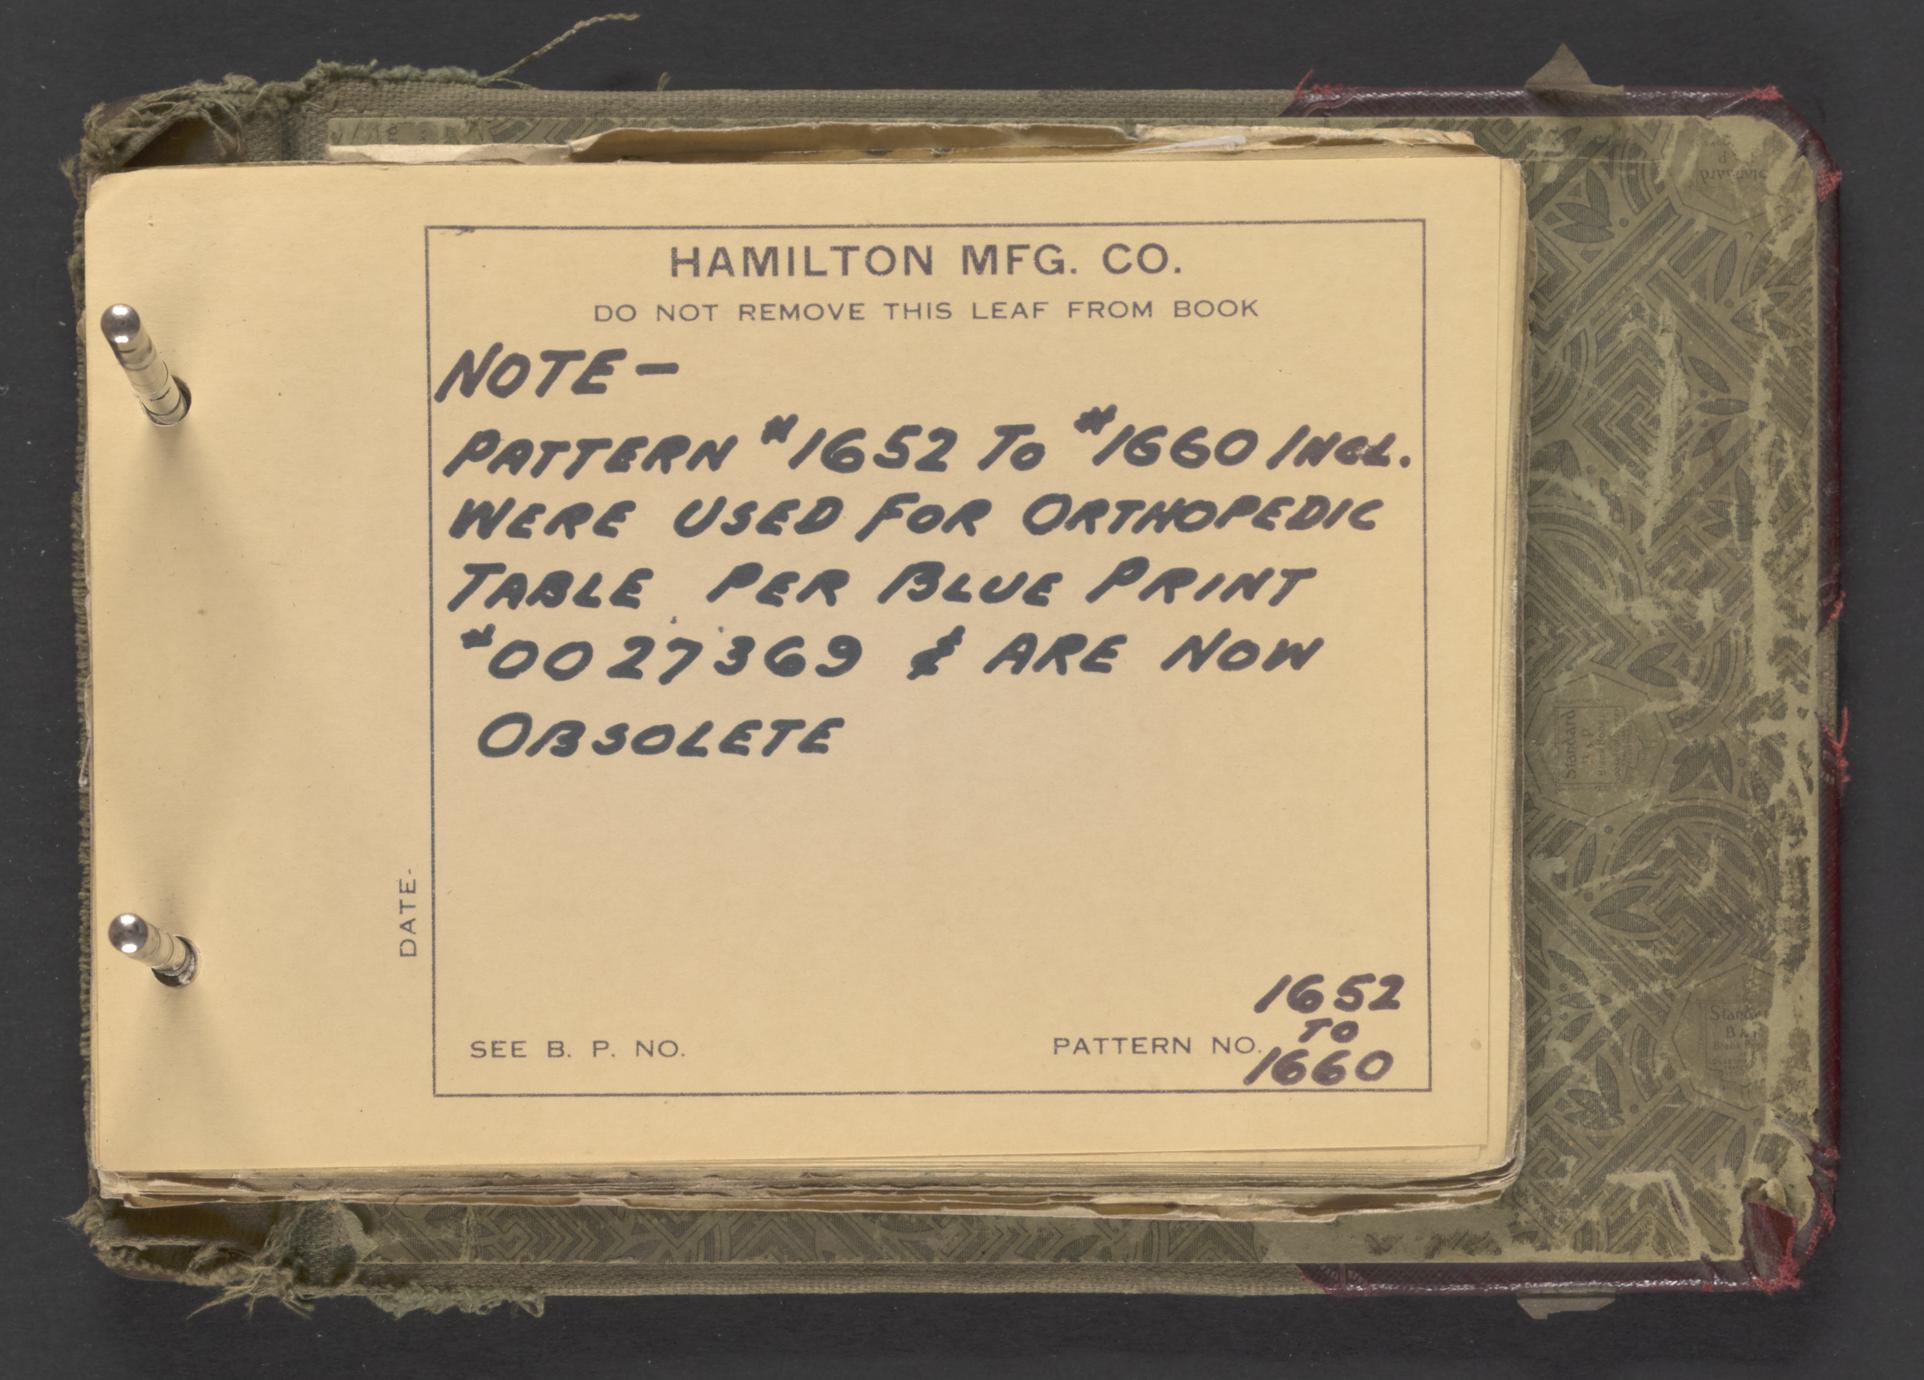 HAMILTON MFG. CO.
DO NOT REMOVE THIS LEAF FROM BOOK
NOTE—
PATTERN #1652 TO #1660 INCL.
WERE USED FOR ORTHOPEDIC
TABLE PER BLUE PRINT
#0027369 & ARE NOW
OBSOLETE
DATE-
SEE B. P. NO.
PATTERN NO.
1652
TO
1660
Standard
B & P